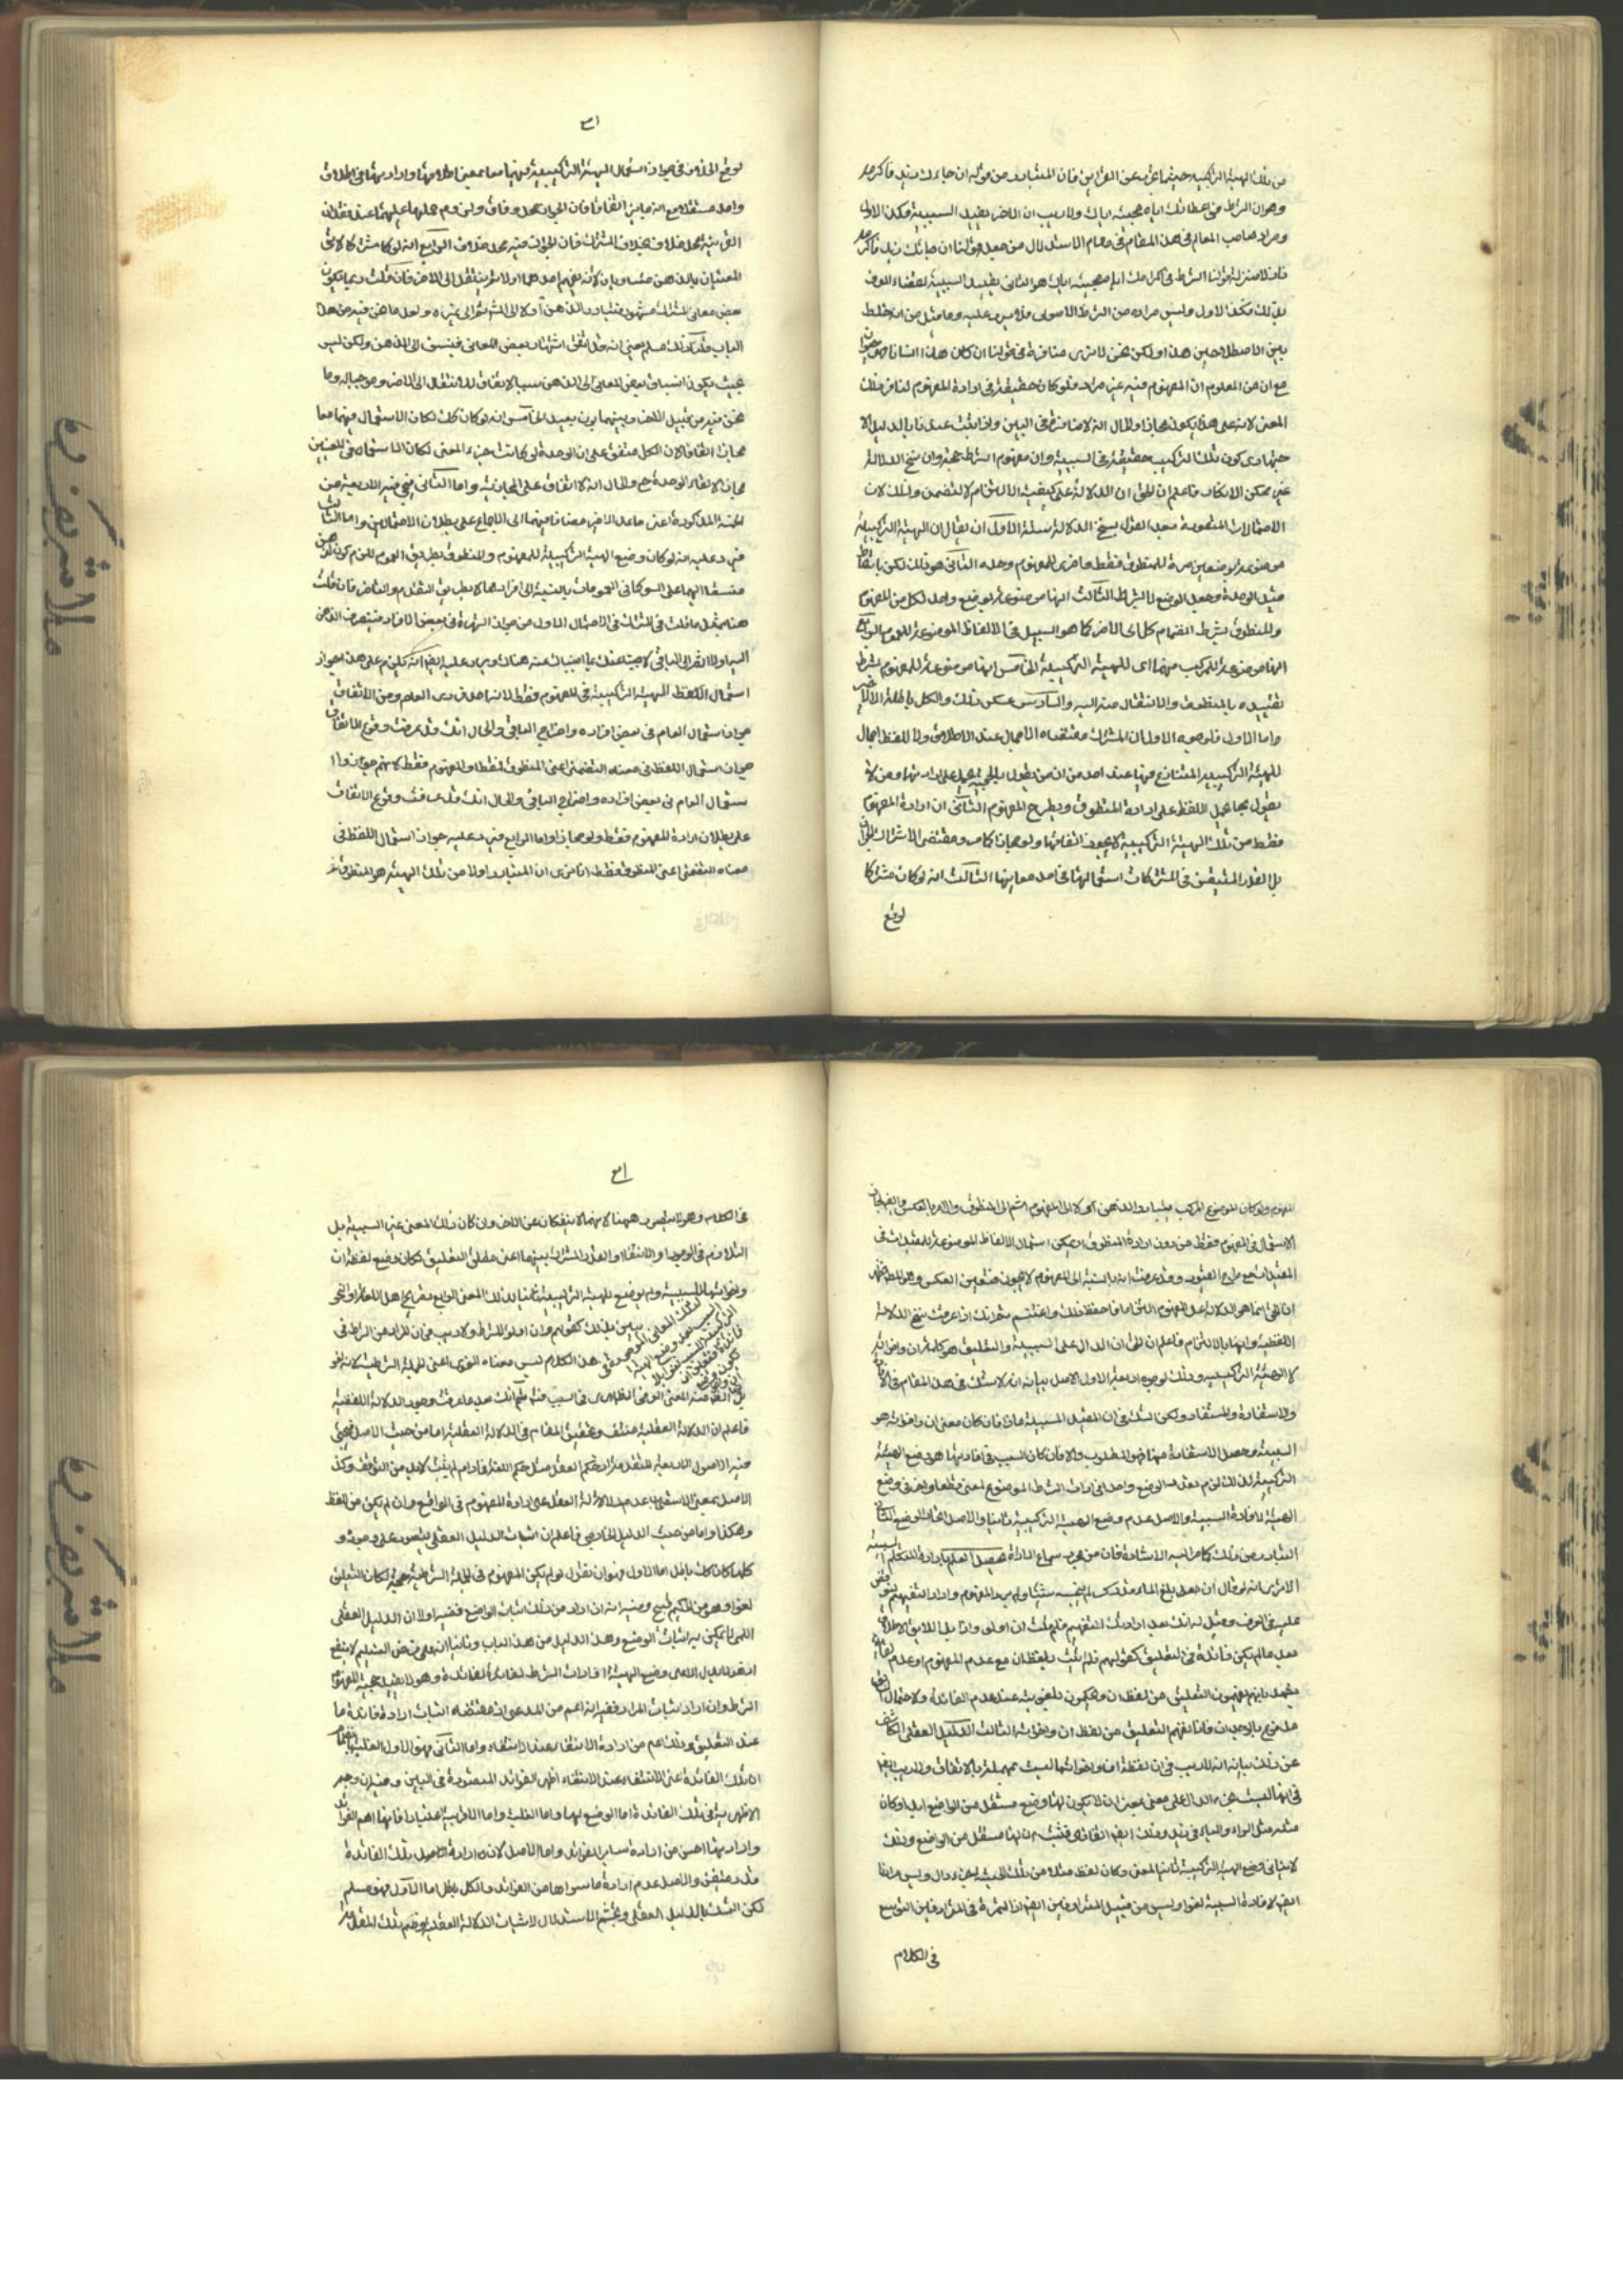 من تلك الهيئة التركيبية حيثما عريت عن القراين فان المتبادر من قوله ان جاءك زيد فاكرمه
وهو ان الشرط في اعطائك اياه مجيئه اياك ولا ريب ان الاخير يفيد السببية فكذا الاول
ومراد صاحب المعالم في هذا المقام في مقام الاستدلال من جعل قولنا ان جاءك زيد فاكرمه
فانه بمنزلة قولنا الشرط في اكرامك اياه مجيئه اياك هو الثاني يفيد السببية لقضاء العرف
بذلك فكذا الاول وليس مراده من الشرط الاصولي فلا يرد عليه وما قيل من انه خلط
بين الاصطلاحين هذا ولكن نحن لا نرى منافرة في قولنا ان كان هذا انسانا
مع ان من المعلوم ان المفهوم فيه غير مراد فلو كان حقيقة في ارادة المفهوم لنافر ذلك
المعنى لانه على هذا يكون مجازا والحال انه لا منافرة في البين واذا ثبت عندنا بالدليل
كون تلك التركيب حقيقة في السببية وان مفهوم الشرط حجة وان نسخ الدلالة
غير ممكن الانكار فاعلم ان الحق ان الدلالة على كيفية الالتزام لا التضمن وذلك لان
الاحتمالات المتصورة بعد القول بنسخ الدلالة ستة الاول ان يقال ان الهيئة التركيبية
موضوعة بوضعين مرة للمنطوق فقط واخرى للمفهوم وحده الثاني هو ذلك لكن
قيد الوحدة وجعل الوضع لا بشرط الثالث انها موضوعة بوضع واحد لكل من المفهوم
والمنطوق بشرط انضمام كل الى الاخر كما هو السبيل في الالفاظ الموضوعة للعموم الرابع
انها موضوعة للمركب منهما اي للهيئة التركيبية الخامس انها موضوعة للمفهوم بشرط
تقييده بالمنطوق والانتقال منه اليه والسادس عكس ذلك والكل باطلة الا الاخير
واما الاول فلوجوه الاول ان المشترك مقتضاه الاجمال عند الاطلاق ولا للفظ اجمال
للهيئة التركيبية المتنازع فيها عند احد من ان من يقول بالحجية يحمل على ارادتهما ومن لا
يقول بها يحمل اللفظ على ارادة المنطوق ويطرح المفهوم الثاني ان ارادة المفهوم
فقط من تلك الهيئة التركيبية لا يجوز اتفاقا ولو مجازا كما مر ومقتضى الاشتراك الجواز
بل القدر المتيقن في المشتركات استعمالها في احد معانيها الثالث انه لو كان مشتركا
لوقع
لوقع الخلاف في جواز استعمال الهيئة التركيبية فيهما معا بمعنى اطلاقها وارادتهما في اطلاق
واحد مستقلا مع انه جايز اتفاقا فان الجواز محل وفاق ولزوم حملها عليهما عند فقدان
القرينة محل خلاف بخلاف المشترك فان الجواز فيه محل خلاف الرابع انه لو كان مشتركا لاتى
المعنيان بالذهن متساويان لا انه يفهم احدهما اولا ثم ينتقل الى الاخر فان قلت ربما يكون
بعض معاني المشترك مشهورا فيتبادر الذهن اولا اليه ثم الى غيره ولعل ما نحن فيه من هذا
الباب قلنا ذلك مسلم يعني انه قد اتفق اشتهار بعض المعاني فيسبق الى الذهن ولكن ليس
بحيث يكون انسباق بعض المعاني الى الذهن سببا لاتفاق الانتقال الى الاخر وخروجها له وما
نحن فيه من قبيل اللف وبينهما بون بعيد الخامس انه لو كان كك لكان الاستعمال فيهما معا
مجازا اتفاقا لان الكل متفق على ان الوحدة لو كانت جزء المعنى لكان الاستعمال في المعنيين
مجازا لانتفاء الوحدة ح والحال انه لا اتفاق على المجازية واما الثاني فيجئ فيه الاربعة من
الخمسة المذكورة اعني ما عدا الاخير مضافا فيهما الى الاجماع على بطلان الاحتمالين واما الثالث
فيرد عليه انه لو كان وضع الهيئة التركيبية للمفهوم والمنطوق بطريق العموم للزم كون الذهن
منسقا اليهما على السواء كما في العمومات بالنسبة الى افرادها لا بطريق التقدم والتاخر فان قلت
هنا بمثل ما قلت في المشترك في الاحتمال الاول من جواز الشهرة في بعض الافراد فينصرف الذهن
اليه اولا ثم الى الباقي لاجبتك بما اجبناك عنه هناك ويرد عليه ايضا انه يلزم على هذا جواز
استعمال اللفظ الهيئة التركيبية في المفهوم فقط لانه احد فردى العام ومن الاتفاق
جواز استعمال العام في بعض افراده واخراج الباقي والحال انك قد عرفت وقوع الاتفاق
جواز استعمال اللفظ في معناه التضمني اعني المنطوق فقط او المفهوم فقط كما ستمر
ستعمال العام في بعض افراده واخراج الباقي والحال انك قد عرفت وقوع الاتفاق
على بطلان ارادة المفهوم فقط ولو مجازا واما الرابع فيرد عليه جواز استعمال اللفظ في
معناه التضمني اعني المنطوق فقط انا نرى ان المتبادر اولا من تلك الهيئة هو المنطوق ثم
المفهوم ولو كان الموضوع المركب يتبادر الذهن اولا الى المفهوم ثم الى المنطوق والامر بالعكس
الاستعمال في المفهوم فقط من دون ارادة المنطوق اذ يمكن استعمال الالفاظ الموضوعة للمقيدات في
المقيدات مع طرح القيود وقد عرفت انه بالنسبة الى المفهوم لا يجوز فتعين العكس وهو المطلوب
ان الحق انما هو الدلالة على المفهوم التزاما فاحفظ ذلك واغتنم ثم انك اذا عرفت نسخ الدلالة
اللفظية وانها بالالتزام فاعلم ان الحق ان الدال على السببية والتعليق هو كلمة ان واخواته
لا الهيئة التركيبية وذلك لوجوه اربعة الاول الاصل بيانه انه لا شك في هذا المقام في الافادة
والاستفادة والمستفاد ولكن الشك في ان المفيد للسببية ماذا فان كان معنى ان واخواته هو
السببية وحصل الاستفادة منها فهو المطلوب والا فان كان السبب في افادتها هو وضع الهيئة
التركيبية لذلك للزم تعدد الوضع واحد في ادات الشرط الموضوع لمعنى قطعا واخر في وضع
الهيئة لافادة السببية والاصل عدم وضع الهيئة التركيبية ثانيا والاصل اتحاد الوضع الثاني
التبادر من ذلك كما مر اليه الاشارة فان من مجرد سماع الاداة يحصل العلم بارادة المتكلم السببية
الا ترى انه لو قال ان بلغ الماء قدر كر لم ينجسه شئ ولم يرد المفهوم واراد التفهيم
عليه في العرف وقيل له انك بعد ارادتك التفهيم فلم قلت ان اولى واتا بل اللايق الاطلاق
بعد ما لم يكن فائدة في التعليق كقولهم قد اتيت بلفظ ان مع عدم المفهوم او عدم
يشهد بانهم يفهمون التعليق من لفظ ان ويحكمون بلغويته عند عدم الفائدة ولا احتمال
مدفوع بالوجدان فانا نفهم التعليق من لفظ ان واخواته الثالث الدليل العقلي الكاشف
عن ذلك بيانه انه لا ريب في ان لفظة ان واخواتها ليست بمهملة بالاتفاق ولا ريب ايضا
في انها ليست جزء الدال على معنى بمعنى ان لا يكون لها وضع مستقل من الواضع ابدا وكان
مثله مثل الزاء والياء في زيد وذلك ايضا اتفاقي فثبت ان لها مستقل من الواضع وذلك
لا ينافي وضع الهيئة التركيبية ثانيا المعنى وكان لفظ مثله من تلك الحيثية جزء دال وليس مرادنا
ايضا لافادة السببية لغوا وليس من قبيل المترادفين ايضا اذ الثمرة في المترادفين التوسع
في الكلام
في الكلام وهو لا يتصور ههنا لانهما لا ينفكان عن الاخر وان كان ذلك المعنى غير السببية بل
التلازم في الوجود او الانتفاء او القدر المشترك بينهما اعني مطلق التعليق لكان وضع لفظة ان
واخواتها للسببية ولم يوضع الهيئة التركيبية ثانيا لذلك المعنى الرابع تصريح اهل اللغة والنحو
بذلك كقولهم وان اولو للشرط ولا ريب في ان المراد من الشرط في
هذا الكلام ليس معناه النحوي اعني الجملة الشرطية لانه
بل المراد منه المعنى العرفي الظاهري في السبب ثم انك بعد ما عرفت وجود الدلالة اللفظية
فاعلم ان الدلالة العقلية منتف وتحقيق المقام في الدلالة العقلية اما من حيث الاصل فيجئ
فيه الاصول الاربعة المتقدمة اذ حكم العقل مثل حكم اللغة فما دام لم يثبت لابد من التوقف وكذا
الاصل بمعنى الاستصحاب عدم دلالة العقل على ارادة المفهوم في الواقع وان لم يكن من اللفظ
وهكذا واما من حيث الدليل الخارجي فاعلم ان اثبات الدليل العقلي يتصور على وجوه و
كلها كانت باطل اما الاول فهو ان نقول لو لم يكن المفهوم في الجملة الشرطية حجة لكان التعليق
لغوا وهو من الحكيم قبيح وفيه انه ان اراد من ذلك اثبات الواضع ففيه اولا ان الدليل العقلي
اللمي لا يمكن به اثبات الوضع وهذا الدليل من هذا الباب وثانيا انه على فرض التسليم لا ينفع
اذ هو انما يدل على وضع الهيئة او ادات الشرط لفائدة وهو لا يفيد حجية المفهوم
الشرط وان اراد اثبات المراد ففيه انه اعم من المدعى اذ مقتضاه اثبات ارادة فائدة ما
عند التعليق وذلك اعم من ارادة الانتفاء عند الانتفاء واما الثاني فهو الاول
ان تلك الفائدة اعني الانتفاء عند الانتفاء اظهر الفوائد المتصورة في البين وحينئذ وجه
الاظهرية في تلك الفائدة اما الوضع لها واما الغلبة واما الاقربية اعتبارا فانها اهم الفوائد
وارادتها احسن من ارادة ساير الفوائد واما الاصل لان ارادة المتكلم تلك الفائدة
قدر متيقن والاصل عدم ارادة ما سواها من الفوائد والكل باطل اما الاول فهو مسلم
لكن التمسك بالدليل العقلي وتجشم الاستدلال لاثبات الدلالة العقلية بضم تلك المقدمة